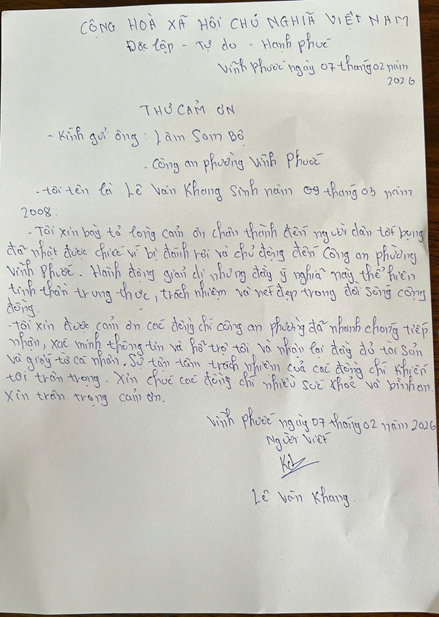 CỘNG HOÀ XÃ HỘI CHỦ NGHĨA VIỆT NAM
Độc lập - Tự do - Hạnh phúc
Vĩnh Phước ngày 07 tháng 02 năm
2026
THƯ CẢM ƠN
- Kính gửi ông : Lâm Som Bộ
. Công an phường Vĩnh Phước
- tôi tên là Lê Văn Khang Sinh năm 09 tháng 03 năm
2008.
- Tôi xin bày tỏ lòng cảm ơn chân thành đến người dân tốt bụng
đã nhặt được chiếc ví bị đánh rơi và chủ động đến Công an phường
Vĩnh Phước. Hành động giản dị nhưng đầy ý nghĩa này thể hiện
tinh thần trung thực, trách nhiệm và nét đẹp trong đời sống cộng
đồng.
- Tôi xin được cảm ơn các đồng chí công an phường đã nhanh chóng tiếp
nhận, xác minh thông tin và hỗ trợ tôi và nhận lại đầy đủ tài sản
và giấy tờ cá nhân. Sự tận tâm trách nhiệm của các đồng chí khiến
tôi trân trọng. Xin chúc các đồng chí nhiều sức khoẻ và bình an.
Xin trân trọng cảm ơn.
Vĩnh Phước ngày 07 tháng 02 năm 2026
Người viết
Lê Văn Khang